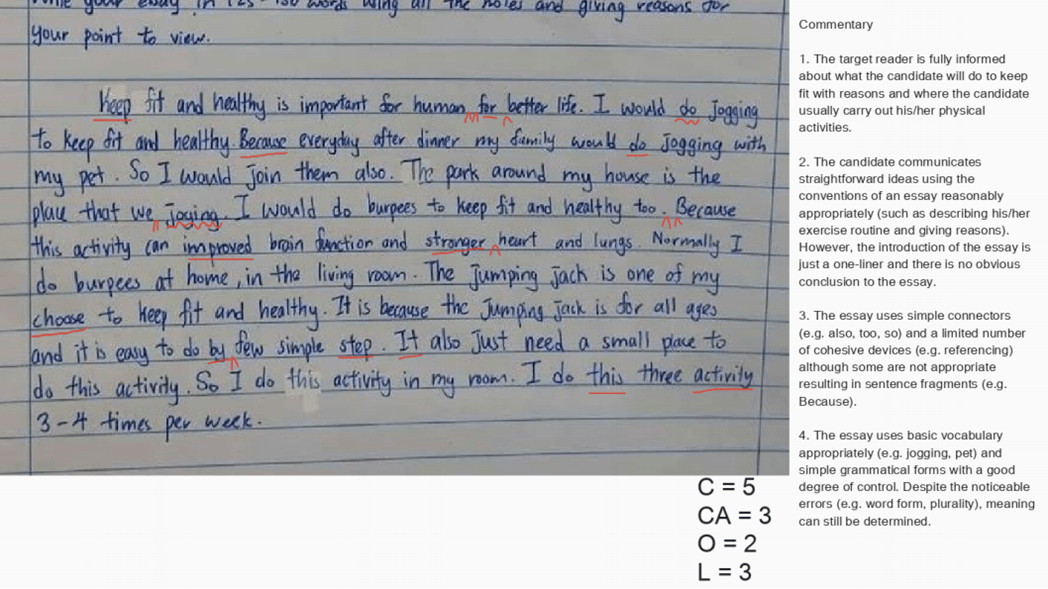 your essay in 125-150 words using all the notes and giving reasons for
your point to view.
Keep fit and healthy is important for human for better life. I would do jogging
to keep fit and healthy. Because everyday after dinner my family would do jogging with
my pet. So I would join them also. The park around my house is the
place that we joging. I would do burpees to keep fit and healthy too. Because
this activity can improved brain function and stronger heart and lungs. Normally I
do burpees at home, in the living room. The jumping jack is one of my
choose to keep fit and healthy. It is because the jumping jack is for all ages
and it is easy to do by few simple step. It also just need a small place to
do this activity. So I do this activity in my room. I do this three activity
3-4 times per week.
C = 5
CA = 3
O = 2
L = 3
Commentary
1. The target reader is fully informed
about what the candidate will do to keep
fit with reasons and where the candidate
usually carry out his/her physical
activities.
2. The candidate communicates
straightforward ideas using the
conventions of an essay reasonably
appropriately (such as describing his/her
exercise routine and giving reasons).
However, the introduction of the essay is
just a one-liner and there is no obvious
conclusion to the essay.
3. The essay uses simple connectors
(e.g. also, too, so) and a limited number
of cohesive devices (e.g. referencing)
although some are not appropriate
resulting in sentence fragments (e.g.
Because).
4. The essay uses basic vocabulary
appropriately (e.g. jogging, pet) and
simple grammatical forms with a good
degree of control. Despite the noticeable
errors (e.g. word form, plurality), meaning
can still be determined.